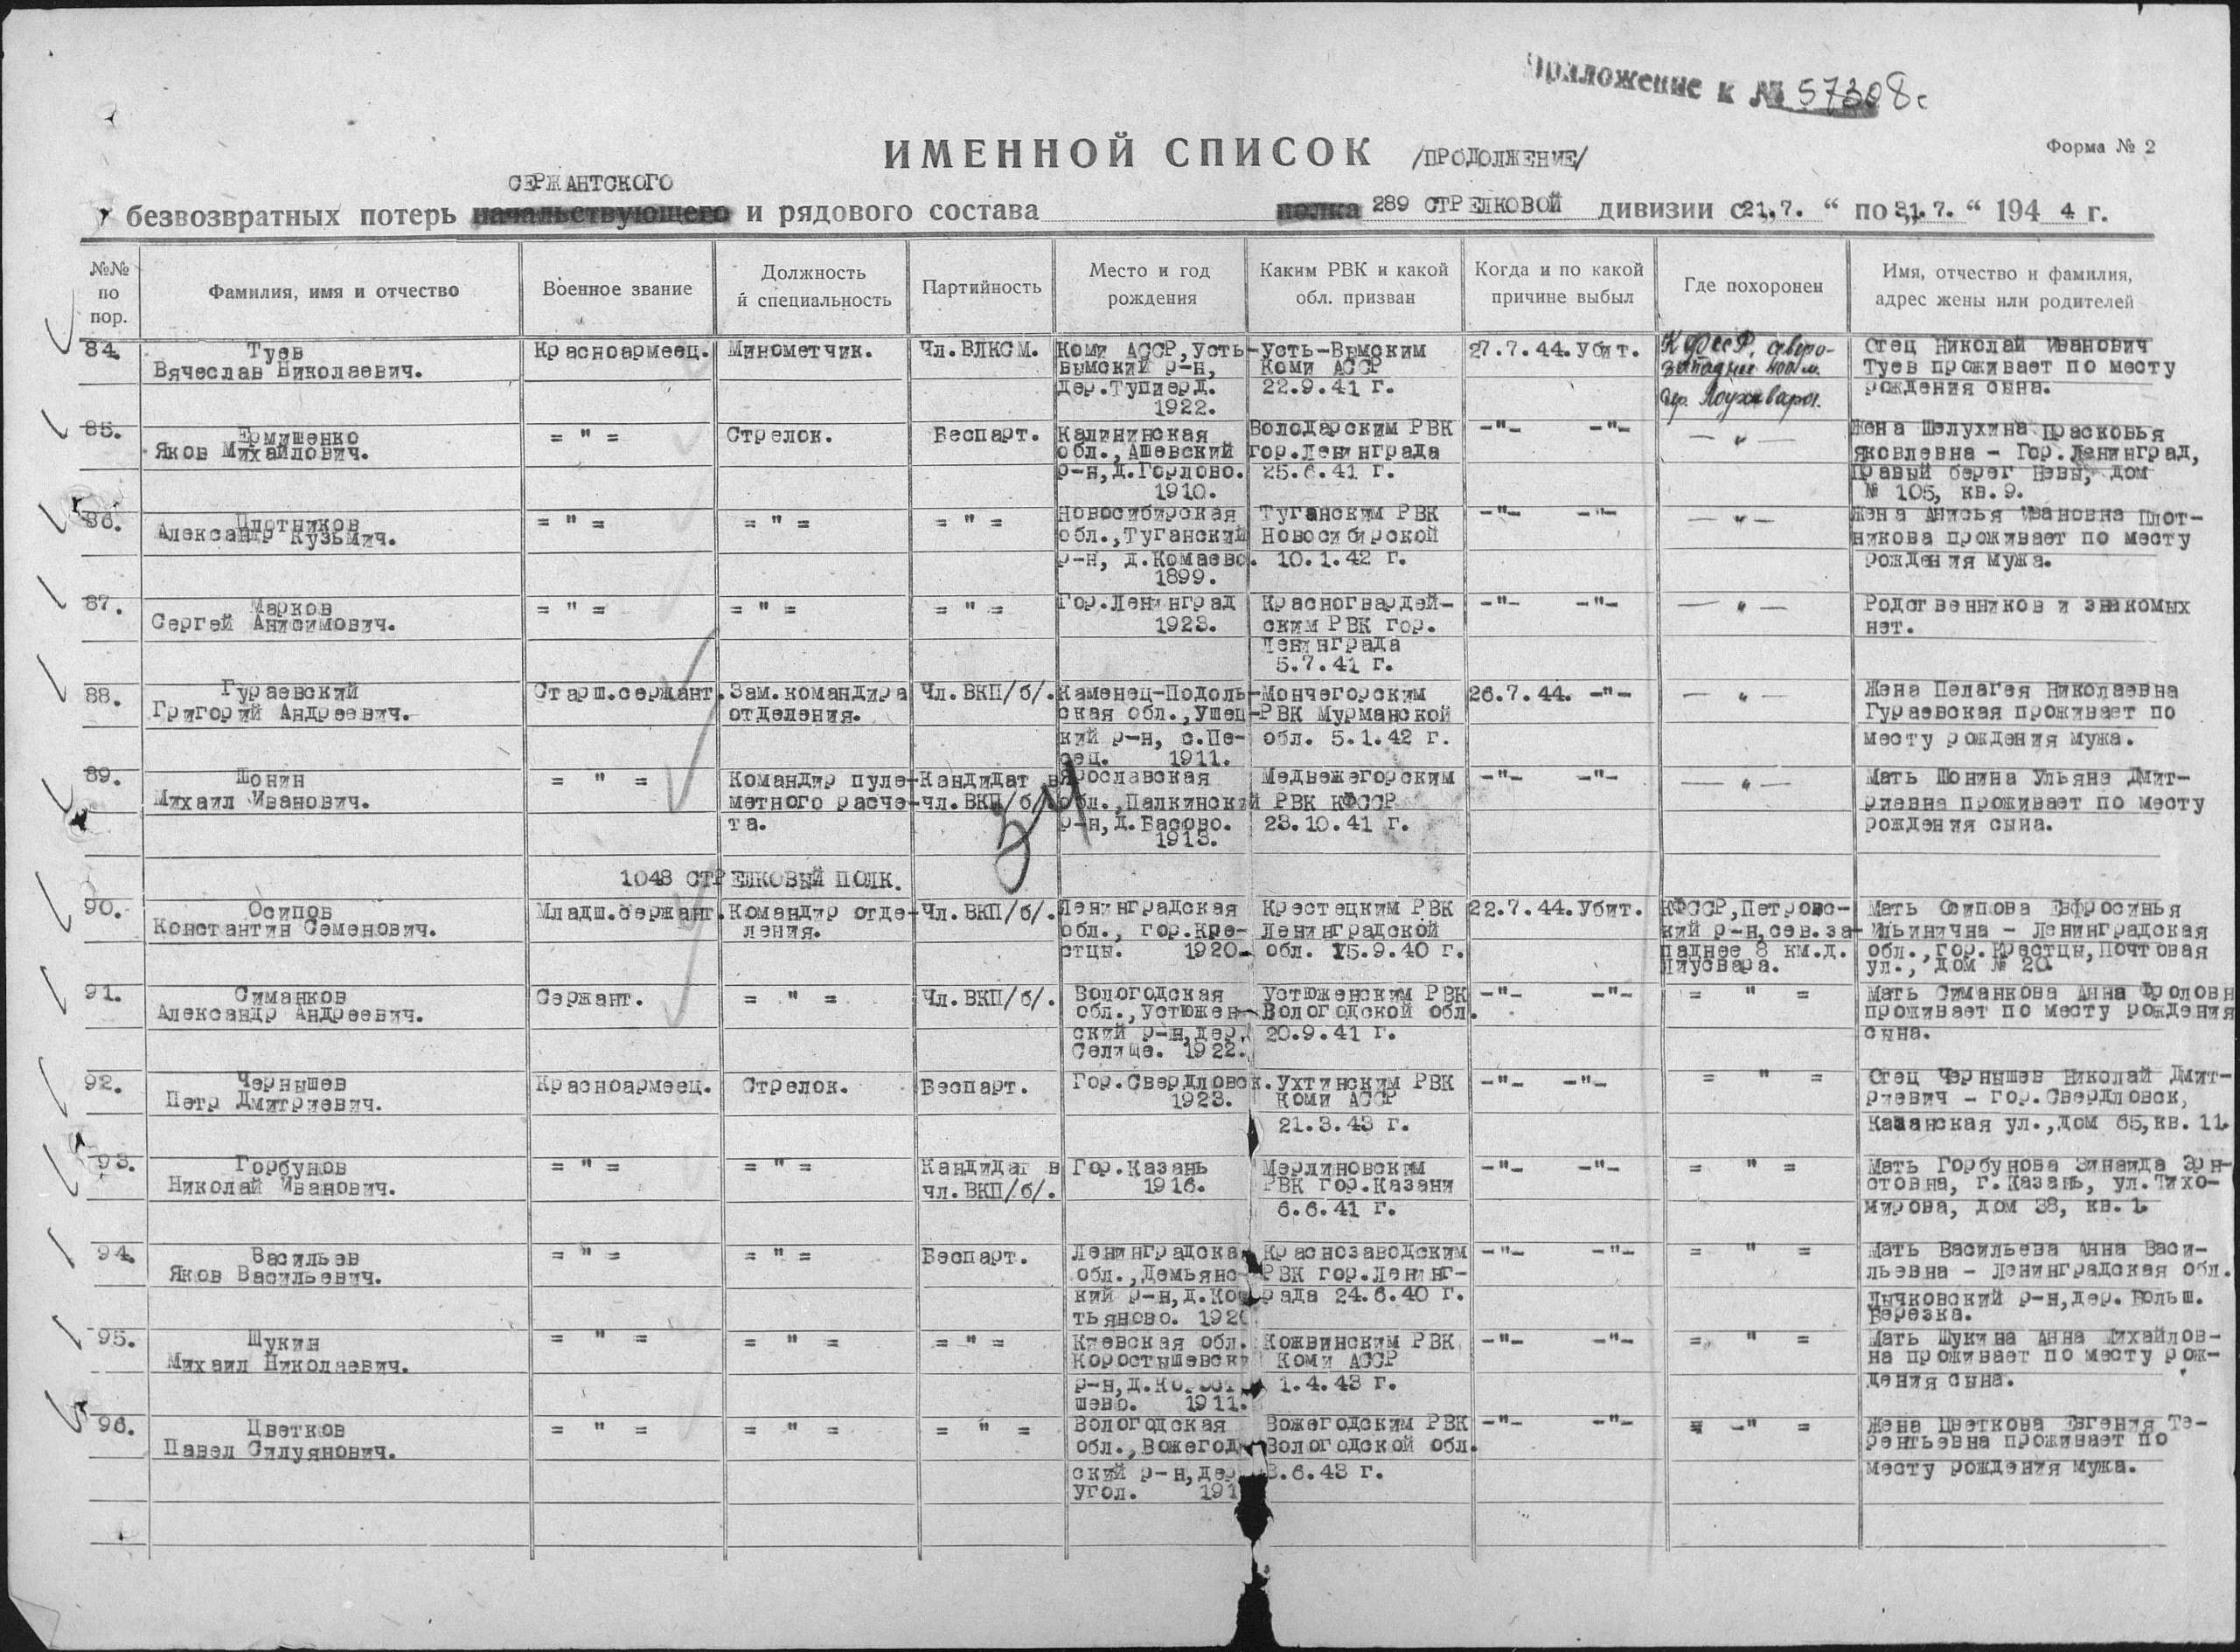 Приложение к № 57308с
ИМЕННОЙ СПИСОК /ПРОДОЛЖЕНИЕ/
Форма № 2
СЕРЖАНТСКОГО
безвозвратных потерь начальствующего и рядового состава полка 289 СТРЕЛКОВОЙ дивизии с „21.7. “ по „31.7. “ 194 4 г.
№№ по пор.
Фамилия, имя и отчество
Военное звание
Должность и специальность
Партийность
Место и год рождения
Каким РВК и какой обл. призван
Когда и по какой причине выбыл
Где похоронен
Имя, отчество и фамилия, адрес жены или родителей
84.
Туев
Вячеслав Николаевич.
Красноармеец.
Минометчик.
Чл.ВЛКСМ.
Коми АССР,Усть-
Вымский р-н,
дер.Тупиерд.
1922.
Усть-Вымским
Коми АССР
22.9.41 г.
27.7.44.Убит.
КФССР, северо-
западнее 400 м.
Отец Николай Иванович
Туев проживает по месту
рождения сына.
85.
Ермишенко
Яков Михайлович.
= " =
Стрелок.
Беспарт.
Калининская
обл.,Ашевский
р-н,д.Горлово.
1910.
Володарским РВК
гор.Ленинграда
25.6.41 г.
-"- -"-
— " —
Жена Шелухина Прасковья
Яковлевна - Гор.Ленинград,
Правый берег Невы, дом
№ 105, кв.9.
86.
Плотников
Александр Кузьмич.
= " =
= " =
= " =
Новосибирская
обл.,Туганский
р-н, д.Комаево.
1899.
Туганским РВК
Новосибирской
10.1.42 г.
-"- -"-
— " —
Жена Анисья Ивановна Плот-
никова проживает по месту
рождения мужа.
87.
Марков
Сергей Анисимович.
= " =
= " =
= " =
Гор.Ленинград
1923.
Красногвардей-
ским РВК гор.
Ленинграда
5.7.41 г.
-"- -"-
— " —
Родственников и знакомых
нет.
88.
Гураевский
Григорий Андреевич.
Старш.сержант.
Зам.командира
отделения.
Чл.ВКП/б/.
Каменец-Подоль-
ская обл.,Ушец-
кий р-н, с.Пе-
сец. 1911.
Мончегорским
РВК Мурманской
обл. 5.1.42 г.
26.7.44. -"-
— " —
Жена Пелагея Николаевна
Гураевская проживает по
месту рождения мужа.
89.
Шонин
Михаил Иванович.
= " =
Командир пуле-
метного расче-
та.
Кандидат в
чл.ВКП/б/
Ярославская
обл.,Палкинский
р-н,д.Васово.
1913.
Медвежегорским
РВК КФССР
23.10.41 г.
-"- -"-
— " —
Мать Шонина Ульяна Дмит-
риевна проживает по месту
рождения сына.
1048 СТРЕЛКОВЫЙ ПОЛК.
90.
Осипов
Константин Семенович.
Младш.сержант.
Командир отде-
ления.
Чл.ВКП/б/.
Ленинградская
обл., гор.Кре-
стцы. 1920.
Крестецким РВК
Ленинградской
обл. 15.9.40 г.
22.7.44.Убит.
КФССР,Петровс-
кий р-н,сев.за-
паднее 8 км.д.
Лиусвара.
Мать Осипова Ефросинья
Ильинична - Ленинградская
обл.,гор.Крестцы,Почтовая
ул., дом № 20.
91.
Симанков
Александр Андреевич.
Сержант.
= " =
Чл.ВКП/б/.
Вологодская
обл.,Устюжен-
ский р-н,дер.
Селище. 1922.
Устюженским РВК
Вологодской обл.
20.9.41 г.
-"- -"-
= " =
Мать Симанкова Анна Фроловн
проживает по месту рождения
сына.
92.
Чернышев
Петр Дмитриевич.
Красноармеец.
Стрелок.
Беспарт.
Гор.Свердловск.
1923.
Ухтинским РВК
Коми АССР
21.3.43 г.
-"- -"-
= " =
Отец Чернышев Николай Дмит-
риевич - гор.Свердловск,
Казанская ул.,дом 65,кв. 11.
93.
Горбунов
Николай Иванович.
= " =
= " =
Кандидат в
чл.ВКП/б/.
Гор.Казань
1916.
Мерлиновским
РВК гор.Казани
6.6.41 г.
-"- -"-
= " =
Мать Горбунова Зинаида Эрн-
стовна, г.Казань, ул.Тихо-
мирова, дом 38, кв. 1.
94.
Васильев
Яков Васильевич.
= " =
= " =
Беспарт.
Ленинградска
обл.,Демьянс-
кий р-н,д.Кос
тьяново. 192
Краснозаводским
РВК гор.Ленинг-
рада 24.6.40 г.
-"- -"-
= " =
Мать Васильева Анна Васи-
льевна - Ленинградская обл.
Лычковский р-н,дер. Больш.
Березка.
95.
Шукин
Михаил Николаевич.
= " =
= " =
= " =
Киевская обл.
Коростышевски
р-н,д.Корост
шево. 1911.
Кожвинским РВК
Коми АССР
1.4.43 г.
-"- -"-
= " =
Мать Шукина Анна Михайлов-
на проживает по месту рож-
дения сына.
96.
Цветков
Павел Силуянович.
= " =
= " =
= " =
Вологодская
обл.,Вожегод
ский р-н,дер
угол. 191
Вожегодским РВК
Вологодской обл.
3.6.43 г.
-"- -"-
= " =
Жена Цветкова Евгения Те-
рентьевна проживает по
месту рождения мужа.